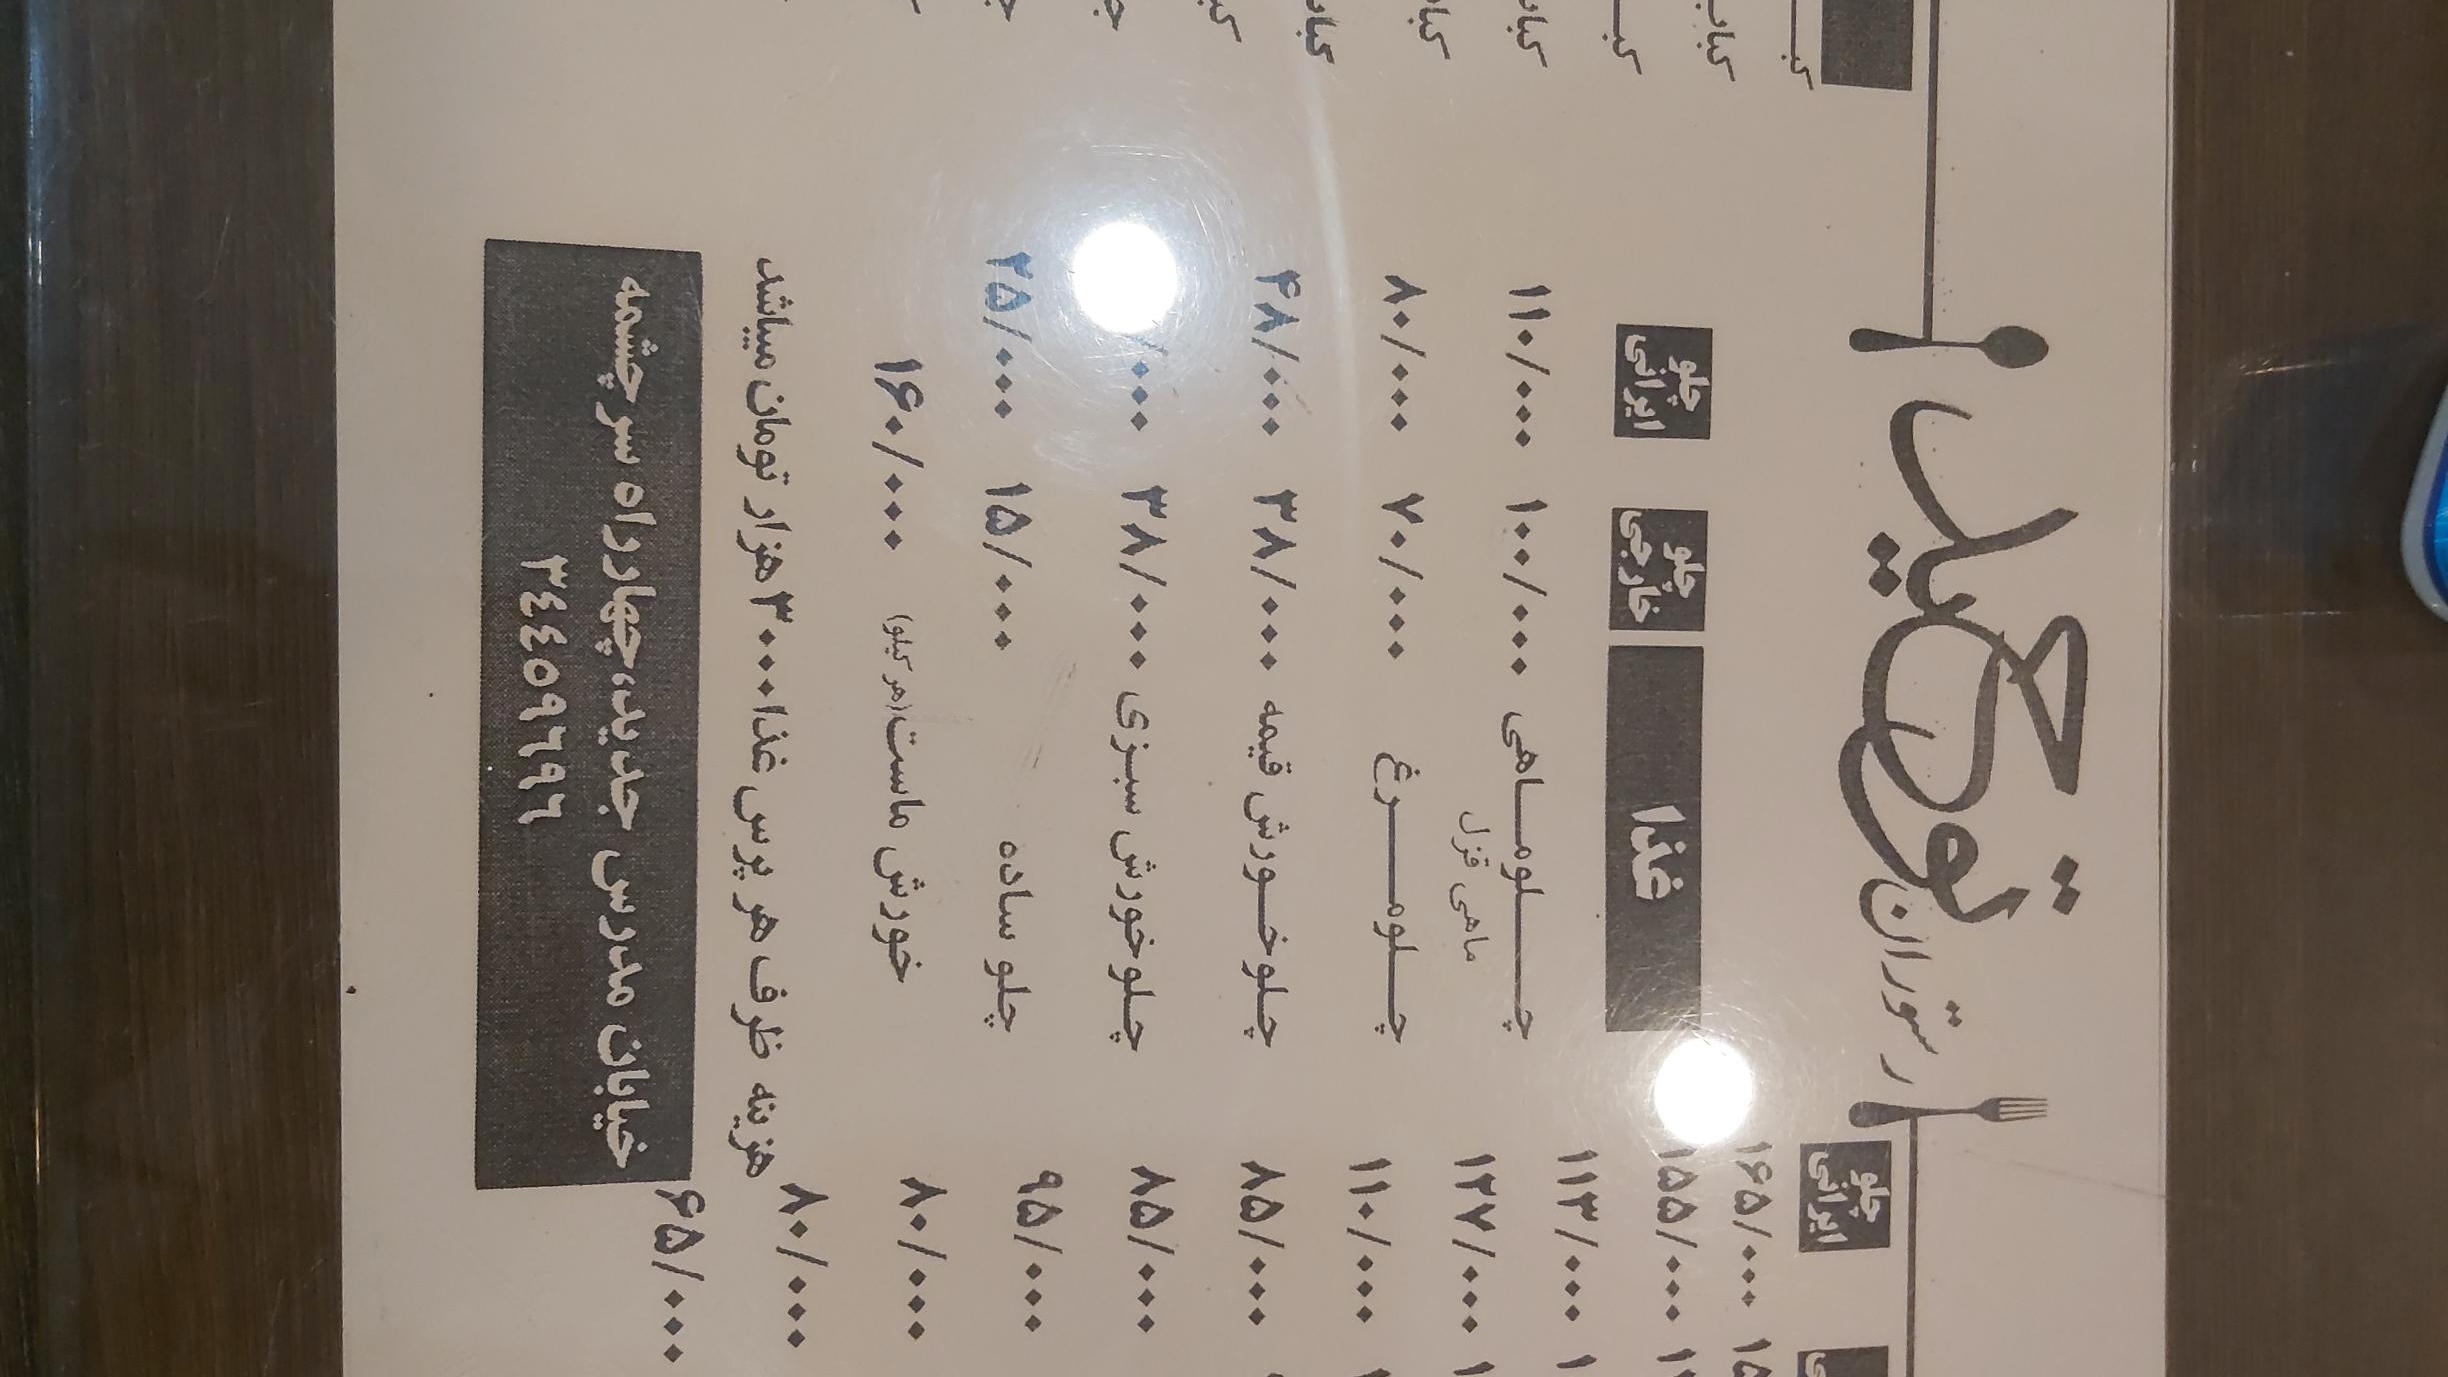 رستوران توحید
غذا چلو خارجی چلو ایرانی
چلوماهی ۱۰۰/۰۰۰ ۱۱۰/۰۰۰
ماهی قزل
چلومرغ ۷۰/۰۰۰ ۸۰/۰۰۰
چلوخورش قیمه ۳۸/۰۰۰ ۴۸/۰۰۰
چلوخورش سبزی ۳۸/۰۰۰ /۰۰۰
چلو ساده ۱۵/۰۰۰ ۲۵/۰۰۰
خورش ماست(هر کیلو) ۱۶۰/۰۰۰
هزینه ظرف هر پرس غذا۳۰۰۰ هزار تومان میباشد
خیابان مدرس جدید،چهارراه سرچشمه
۳٤٤٥٩٦٩٦
چلو ایرانی
۱۶۵/۰۰۰
۱۵۵/۰۰۰
۱۱۳/۰۰۰
۱۲۷/۰۰۰
۱۱۰/۰۰۰
۸۵/۰۰۰
۸۵/۰۰۰
۹۵/۰۰۰
۸۰/۰۰۰
۸۰/۰۰۰
۶۵/۰۰۰